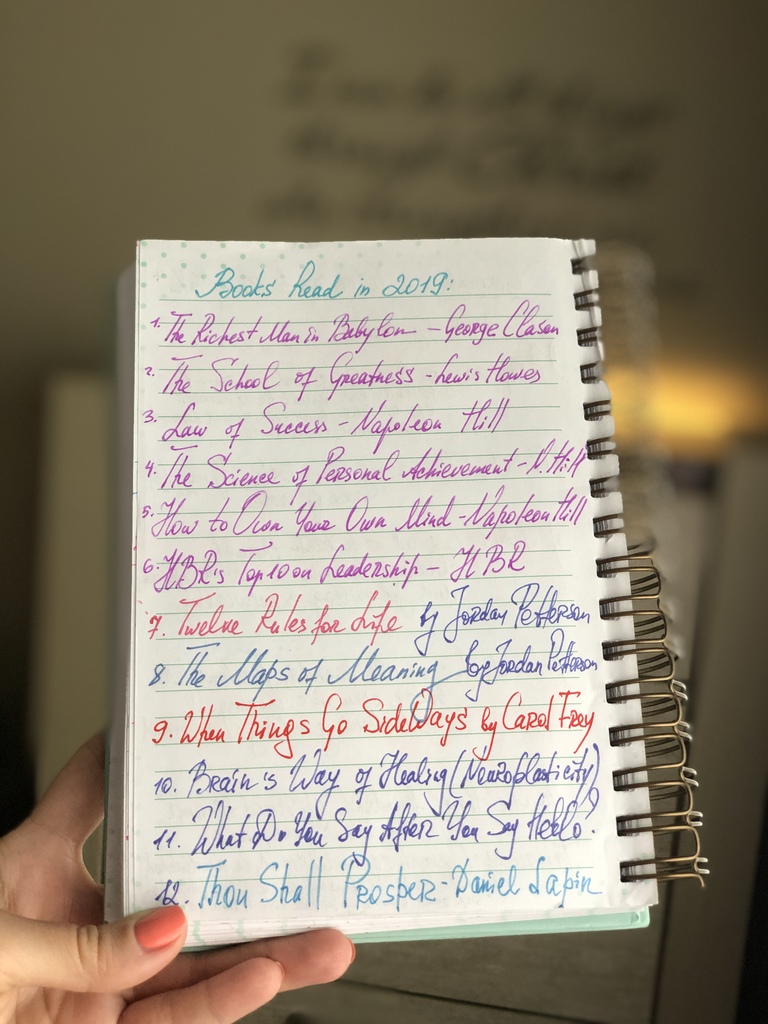 Books Read in 2019:
1. The Richest Man in Babylon - George Clason
2. The School of Greatness - Lewis Howes
3. Law of Success - Napoleon Hill
4. The Science of Personal Achievement - N. Hill
5. How to Own Your Own Mind - Napoleon Hill
6. HBR's Top 10 on Leadership - HBR
7. Twelve Rules for Life by Jordan Petterson
8. The Maps of Meaning by Jordan Petterson
9. When Things Go SideWays by Carol Frey
10. Brain's Way of Healing (Neuroplasticity)
11. What Do You Say After You Say Hello?
12. Thou Shall Prosper - Daniel Lapin